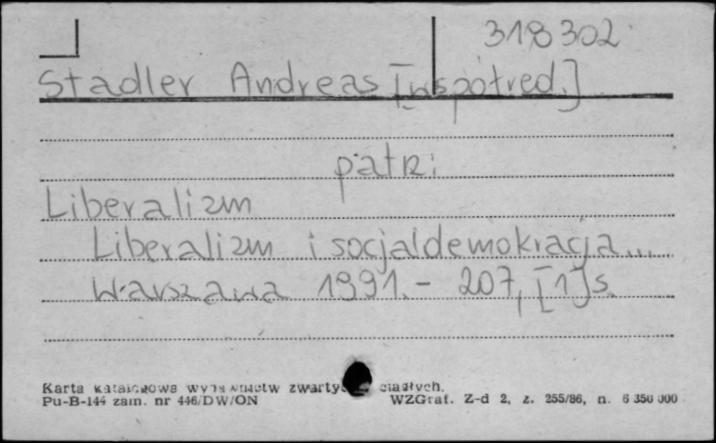 318302
Stadler Andreas [współred.]
patrz:
Liberalizm
Liberalizm i socjaldemokracja...
Warszawa 1991. - 207, [1] s.
Karta katalogowa wydawnictw zwartych ciągłych.
Pu-B-144 zam. nr 446/DW/ON WZGraf. Z-d 2, z. 255/86, n. 6 350 000